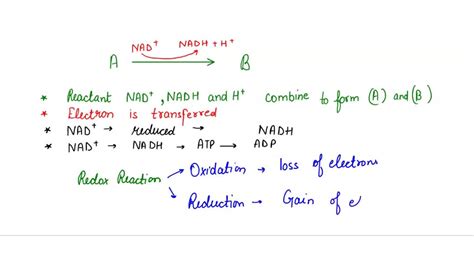 NAD⁺ NADH + H⁺
A → B
* Reactant NAD⁺, NADH and H⁺ combine to form (A) and (B)
* Electron is transferred
* NAD⁺ → reduced → NADH
* NAD⁺ → NADH → ATP → ADP
Redox Reaction → Oxidation → loss of electrons
→ Reduction → Gain of e